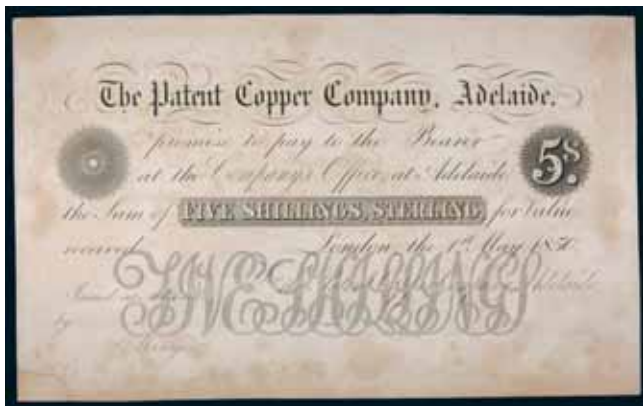 The Patent Copper Company, Adelaide.
promise to pay to the Bearer
5s.
at the Company's Office, at Adelaide
the Sum of FIVE SHILLINGS, STERLING, for Value
received London, the 1st May 1850
FIVE SHILLINGS
Adelaide
by